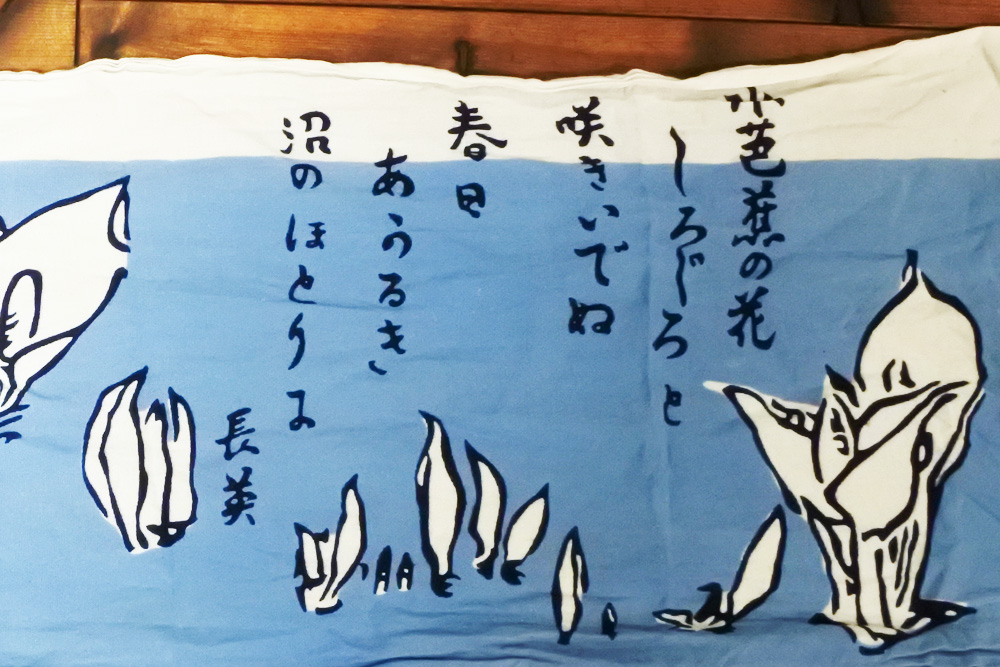 水芭蕉の花
しろじろと
咲きいでぬ
春日
あかるき
沼のほとりに
長英